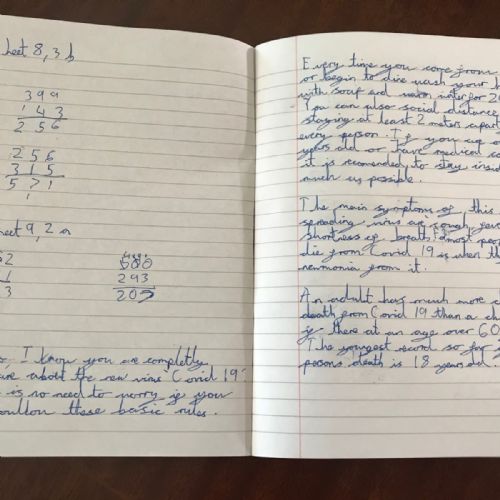 heet 8, 3 b
399
143
256
256
315
571
1
heet 9, 2 a
62
1
3
500
293
207
I know you are completly
are about the new virus Covid 19?
is no need to worry if you
these basic rules.
Every time you come from
or begin to dine wash your
with soup and water for 2
You can also social distance
staying at least 2 meters apart
every person. If you are o
years old or have medical co
it is recomended to stay insid
much us possible.
The main symptoms of this
spreading virus are cough, feve
shortness of breath. most peop
die from Covid 19 is when th
neumonia from it.
An adult has much more c
death from Covid 19 than a ch
if there at an age over 60
The youngest record so far
persons death is 18 years old.